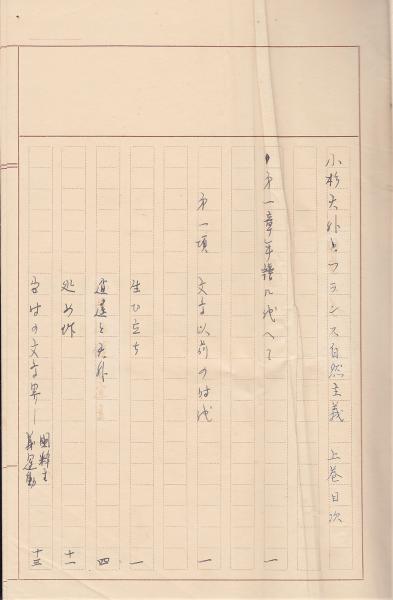 小杉天外とフランス自然主義 上巻目次
第一章年譜に代へて 一
第一項 文学以前の時代 一
生ひ立ち 一
逍遥と天外 四
処女作 十一
当時の文学界―国粋主義運動 十三